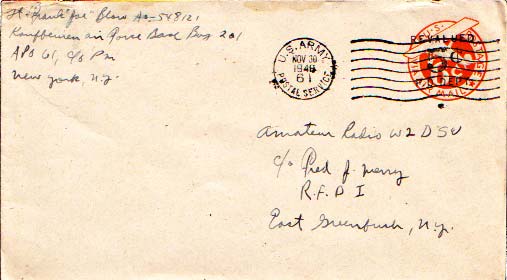 Lt. "Frank" Joe" Blow Ao-548121
Kaufbeuren air Force Base Box 201
APO 61, c/o P.M.
New York, N.Y.
U.S. ARMY
NOV 30
1948
61
POSTAL SERVICE
U.S. POSTAGE
REVALUED
5¢
P.O. DEPT.
VIA AIR MAIL
Amateur Radio W2DSU
c/o Fred J. Merry
R.F.D I
East Greenbush, N.Y.